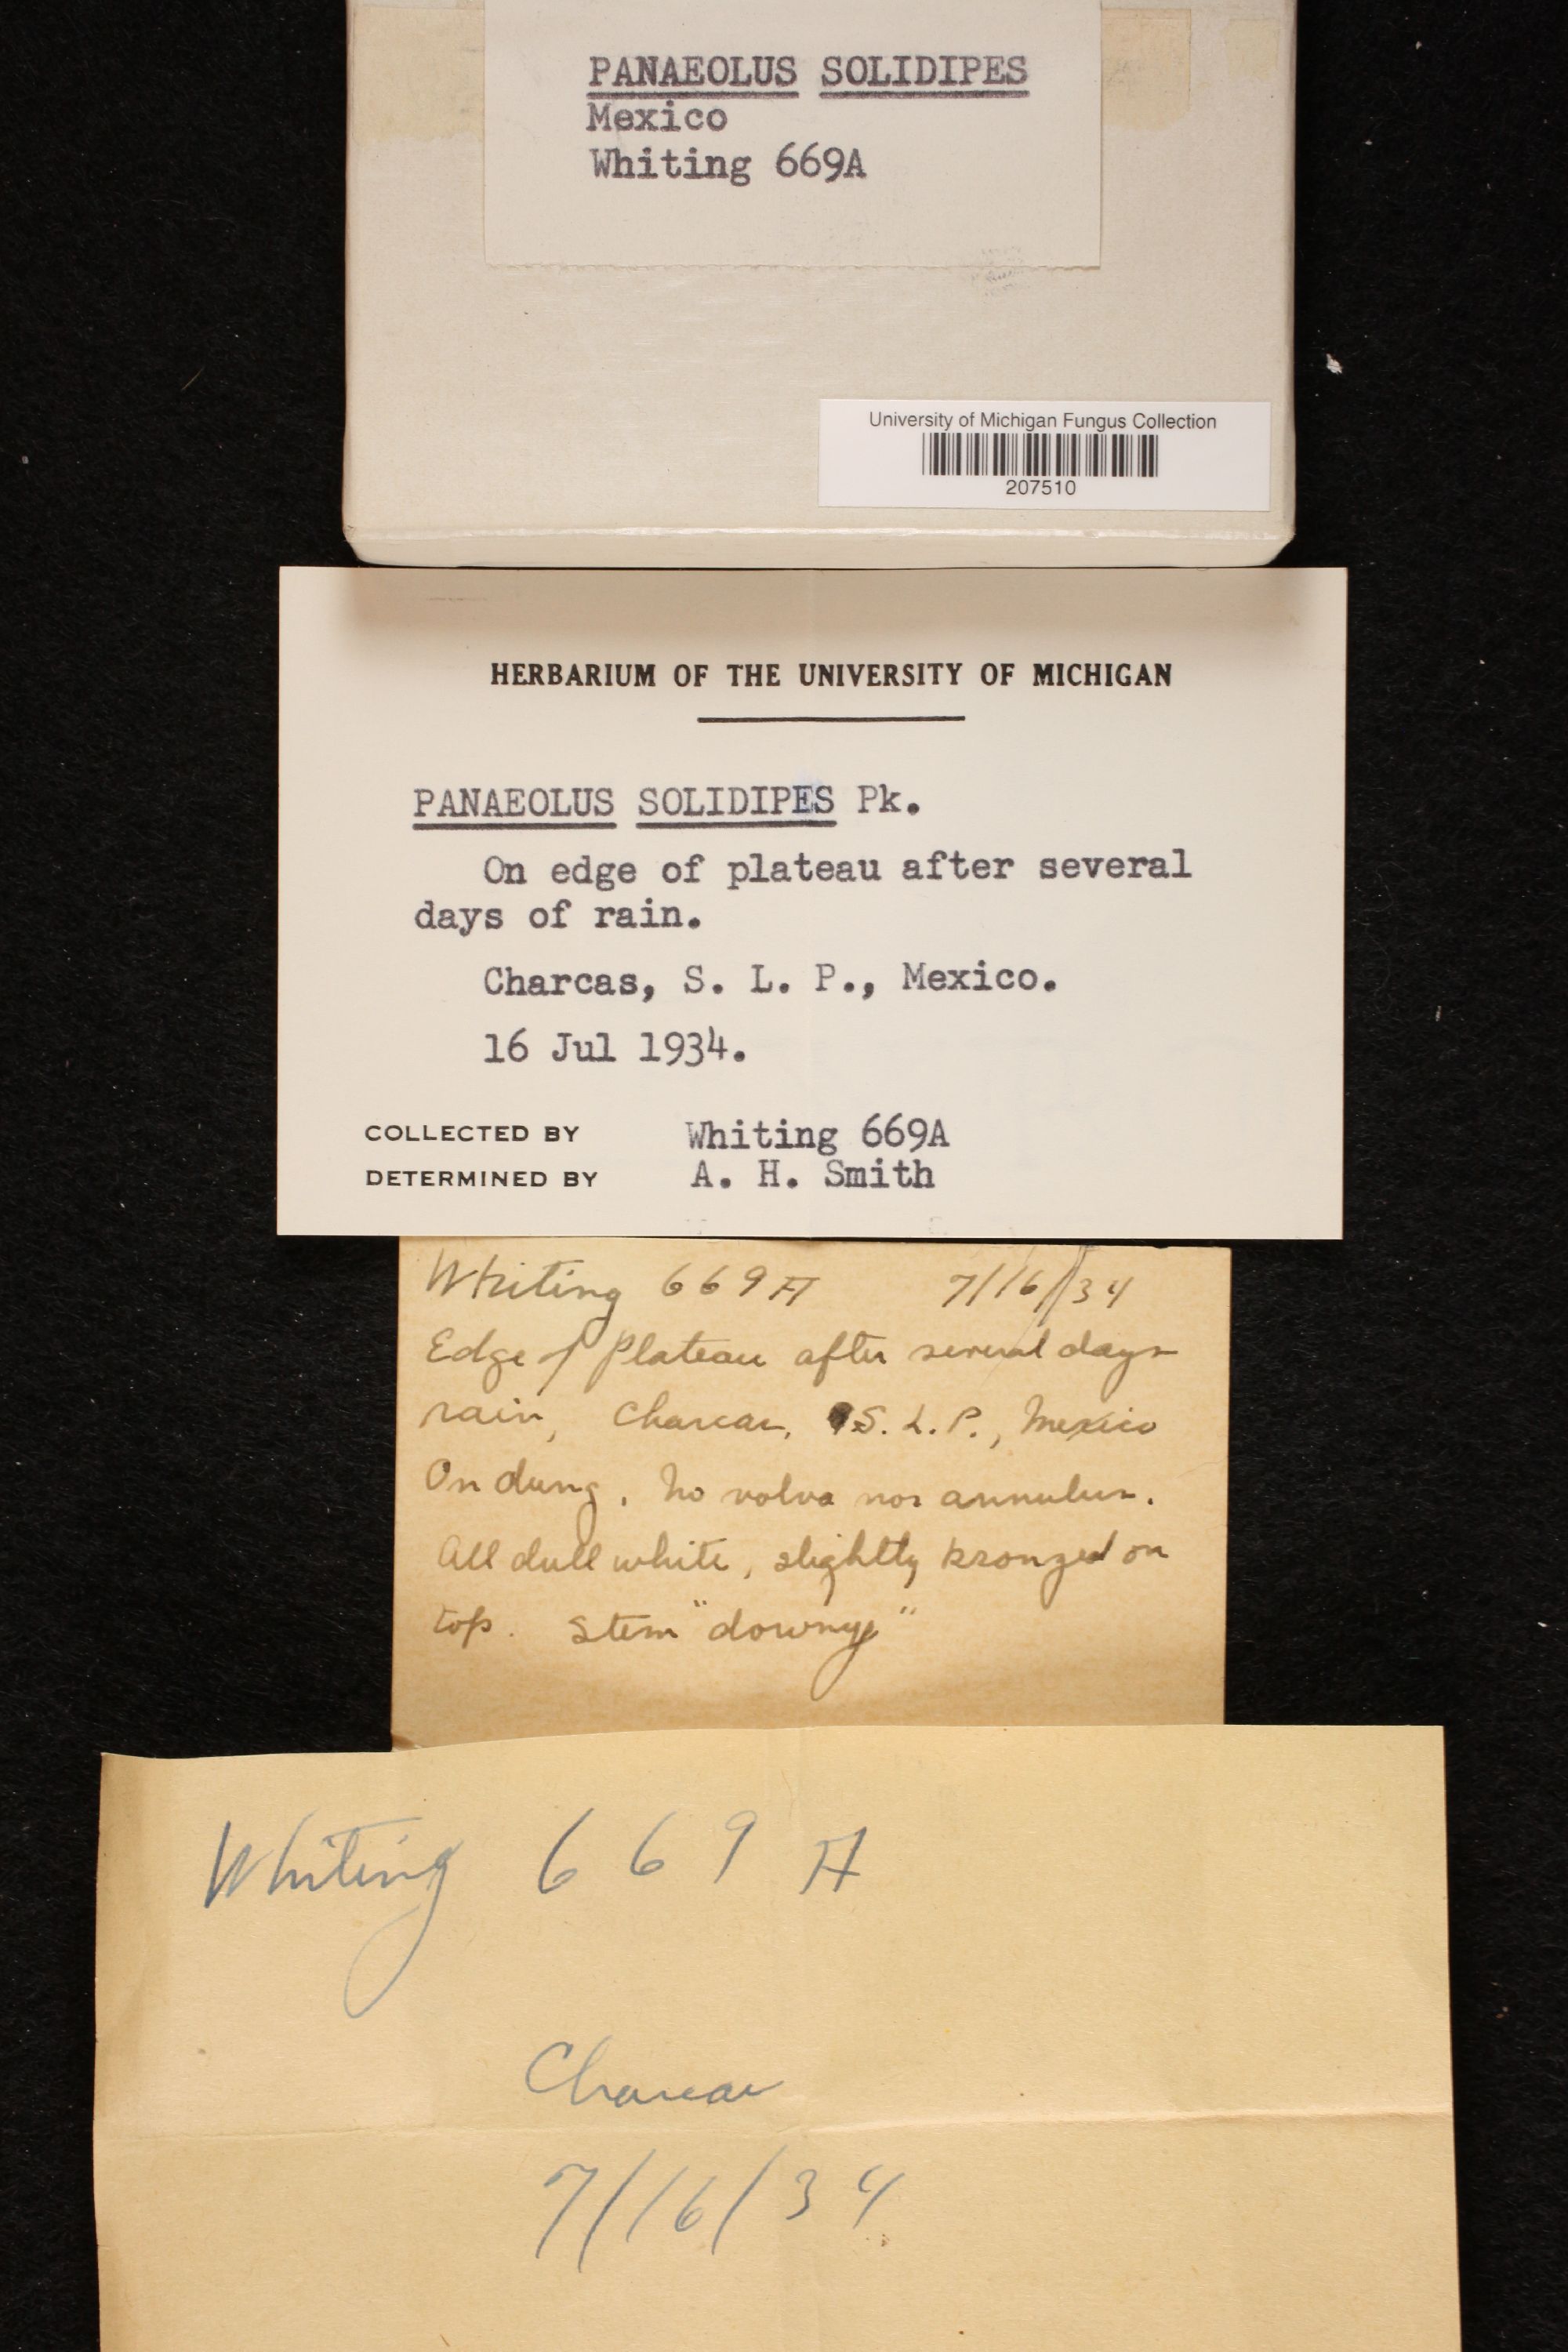 PANAEOLUS SOLIDIPES
Mexico
Whiting 669A
University of Michigan Fungus Collection
207510
HERBARIUM OF THE UNIVERSITY OF MICHIGAN
PANAEOLUS SOLIDIPES Pk.
On edge of plateau after several
days of rain.
Charcas, S. L. P., Mexico.
16 Jul 1934.
COLLECTED BY Whiting 669A
DETERMINED BY A. H. Smith
Whiting 669A 7/16/34
Edge of Plateau after several days
rain, Charcas, S. L. P., Mexico
On dung. No volva nor annulus.
All dull white, slightly bronzed on
top. Stem "downy"
Whiting 669A
Charcas
7/16/34